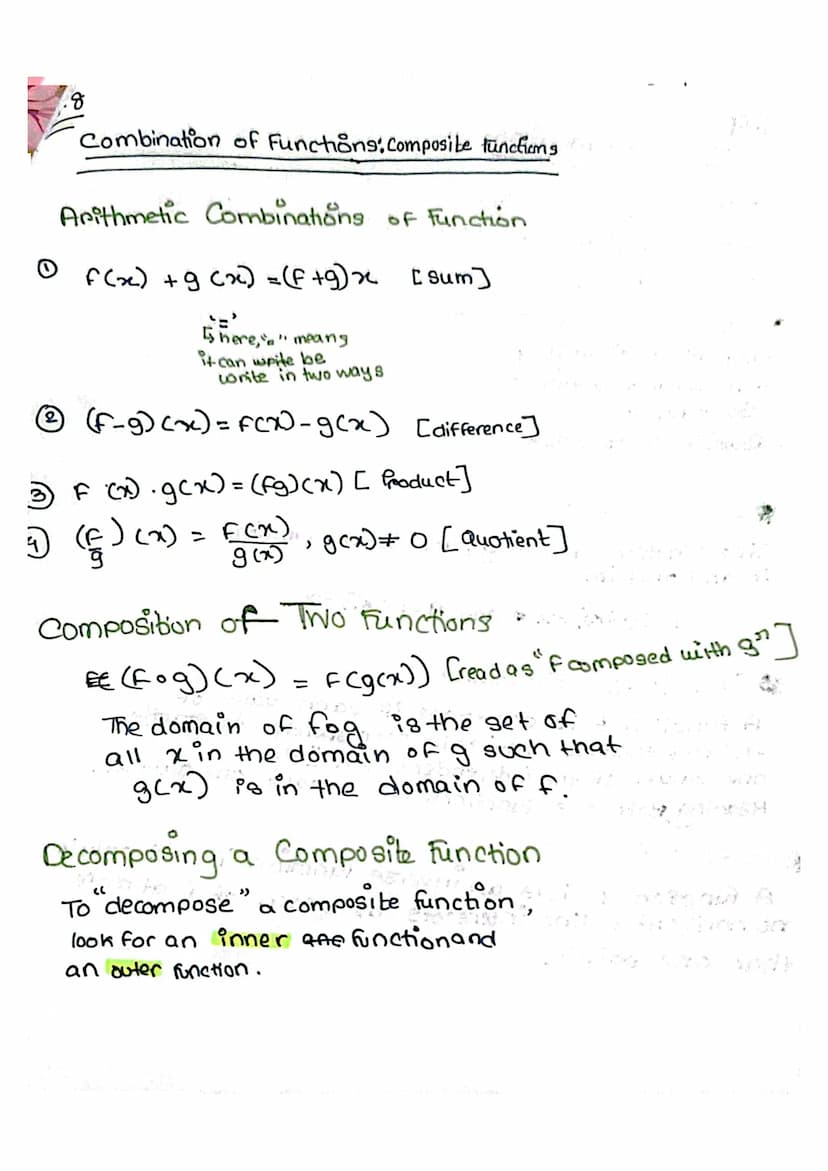 .8
Combination of Functions: Composite functions
Arithmetic Combinations of Function
① f(x) + g(x) = (f+g)x [sum]
'='
↳ here, "=" means
it can write be
write in two ways
② (f-g)(x) = f(x) - g(x) [difference]
③ f(x) . g(x) = (fg)(x) [Product]
④ (f/g)(x) = f(x)/g(x), g(x) ≠ 0 [Quotient]
Composition of Two Functions
(fog)(x) = f(g(x)) [read as "f composed with g"]
The domain of fog is the set of
all x in the domain of g such that
g(x) is in the domain of f.
Decomposing a Composite Function
To "decompose" a composite function,
look for an inner function and
an outer function.